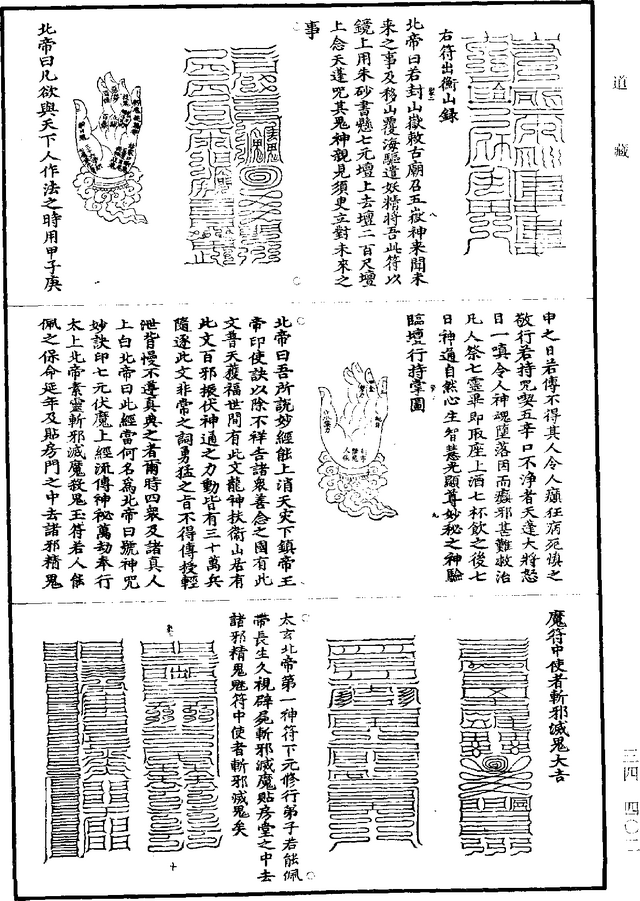 道藏
右符出衡山録
北帝曰若封山嶽敕古廟召五嶽神來聞未
來之事及移山覆海驅遣妖精將吾此符以
鏡上用朱砂書懸七元壇上去壇二百尺壇
上念天蓬咒其鬼神親見須臾立對未來之
事
北帝曰凡欲與天下人作法之時用甲子庚
申之日若傳不得其人令人癲狂病死慎之
敬行若持咒喫五辛口不淨者天蓬大將怒
目一嗔令人神魂墮落因而癲邪甚難救治
凡人祭七靈畢即取座上酒七杯飲之後七
日神通自然心生智慧光顯尊妙秘之神驗
臨壇行持掌圖
北帝曰吾所説妙經能上消天災下鎮帝王
帝印使訣以除不祥告諸衆善念之國有此
文普天獲福世間有此文龍神扶衛山居有
此文百邪振伏神通之力動皆有三十萬兵
隨逐此文非常之詞勇猛之旨不得傳授輕
泄皆慢不遵真典之者爾時四衆及諸真人
上白北帝曰此經當何名爲北帝曰號神咒
妙訣印七元伏魔上經流傳神秘萬劫奉行
太上北帝素靈斬邪滅魔殺鬼玉符若人能
佩之保命延年及貼房門之中去諸邪精鬼
魔符中使者斬邪滅鬼大吉
太玄北帝第一神符下元修行弟子若能佩
帶長生久視辟屍斬邪滅魔貼房堂之中去
諸邪精鬼魅符中使者斬邪滅鬼矣
三四 四〇二